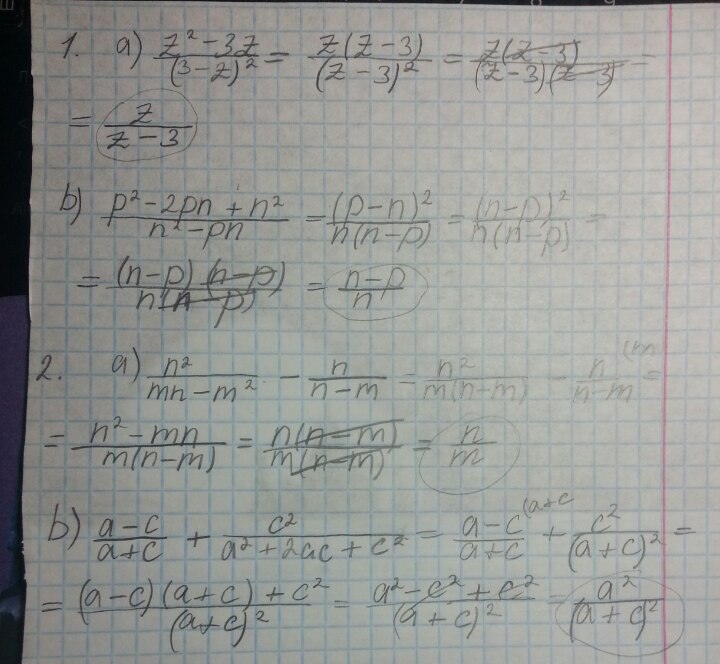 1. a) (z² - 3z)/(3-z)² = z(z-3)/(z-3)² = z(z-3)/(z-3)(z-3) =
= z/(z-3)
b) (p² - 2pn + n²)/(n² - pn) = (p-n)²/n(n-p) = (n-p)²/n(n-p) =
= (n-p)(n-p)/n(n-p) = (n-p)/n
2. a) n²/(mn - m²) - n/(n-m) = n²/m(n-m) - n/(n-m) (m =
= (n² - mn)/m(n-m) = n(n-m)/m(n-m) = n/m
b) (a-c)/(a+c) + c²/(a² + 2ac + c²) = (a-c)/(a+c) (a+c + c²/(a+c)² =
= ((a-c)(a+c) + c²)/(a+c)² = (a² - c² + c²)/(a+c)² = a²/(a+c)²